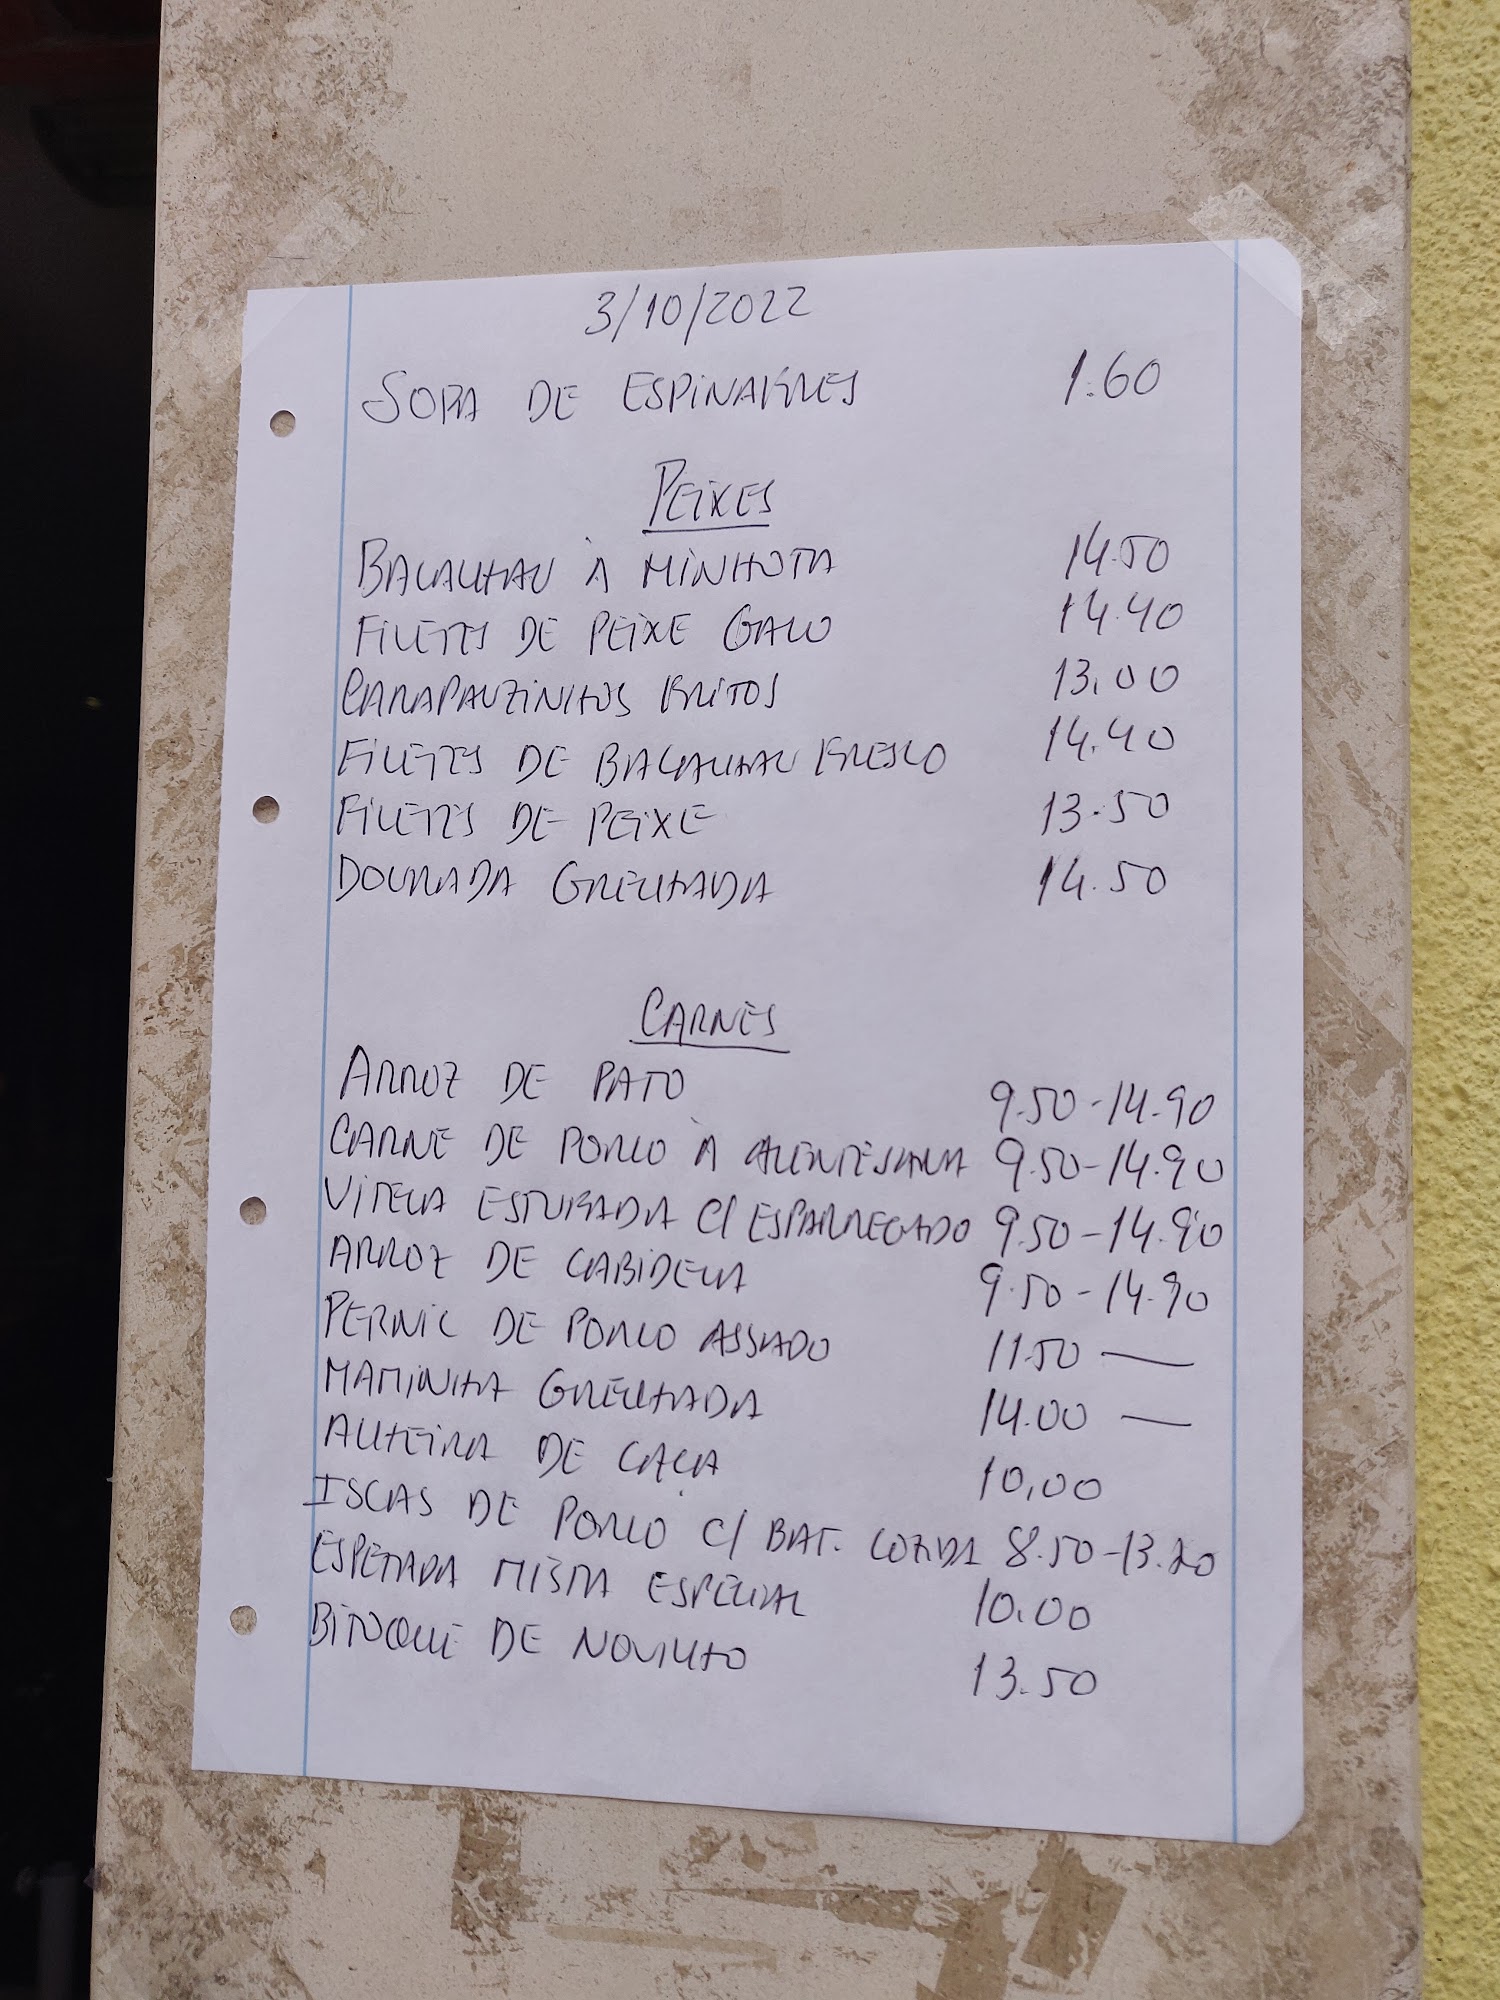 3/10/2022
SOPA DE ESPINAFRES 1.60
PEIXES
BACALHAU À MINHOTA 14.50
FILETES DE PEIXE GALO 14.40
CARAPAUZINHOS FRITOS 13,00
FILETES DE BACALHAU FRESCO 14.40
FILETES DE PEIXE 13.50
DOURADA GRELHADA 14.50
CARNES
ARROZ DE PATO 9.50-14.90
CARNE DE PORCO À ALENTEJANA 9.50-14.90
VITELA ESTUFADA C/ ESPARREGADO 9.50-14.90
ARROZ DE CABIDELA 9.50-14.90
PERNIL DE PORCO ASSADO 11.50 —
MAMINHA GRELHADA 14.00 —
ALHEIRA DE CAÇA 10,00
ISCAS DE PORCO C/ BAT. COZIDA 8.50-13.20
ESPETADA MISTA ESPECIAL 10.00
BITOQUE DE NOVILHO 13.50